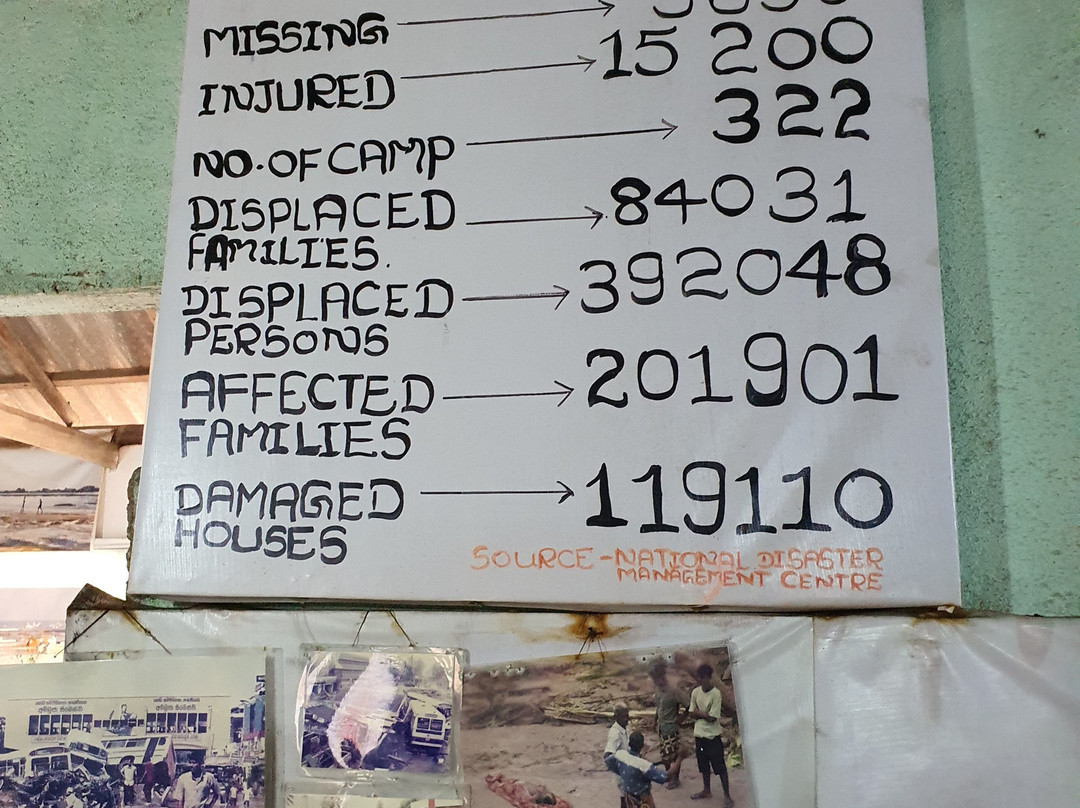 MISSING
INJURED → 15 200
NO. OF CAMP → 322
DISPLACED → 84031
FAMILIES.
DISPLACED → 392048
PERSONS
AFFECTED → 201901
FAMILIES
DAMAGED → 119110
HOUSES
SOURCE - NATIONAL DISASTER
MANAGEMENT CENTRE